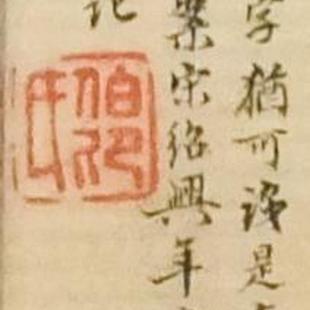 字猶可識是
案宋紹興年
记